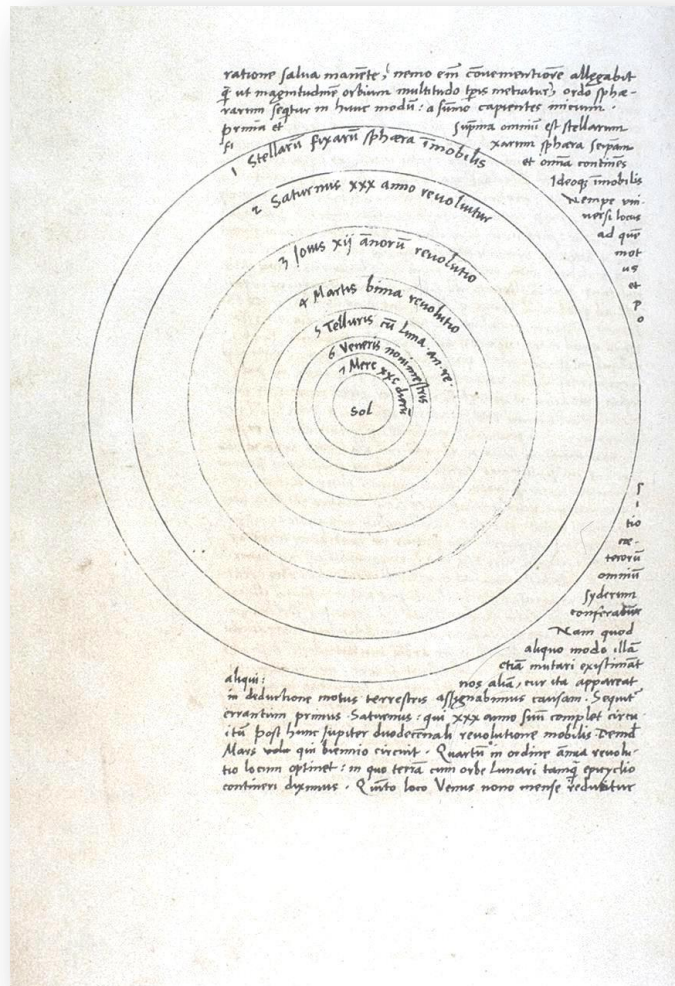 ratione salva manēte, nemo em̄ cōvenientiorē allegabit
q̄ ut magnitudinē orbium multitudo tp̄is metiatur, ordo sphæ-
rarum seq̄tur in hunc modū: a sūmo capientes initium.
prima et
sup̄ma omniū est stellarum
fi
xarum sphæra seipam
et omīa continēs
Ideoq̨ īmobilis
Nempe uni-
versi locus
ad quē
mot
us
et
p
o
1 Stellarū fixarū sphæra īmobilis
2 Saturnus xxx anno revoluitur
3 Jovis xij ānorū revolutio
4 Martis bima revolutio
5 Telluris cū Luna an. re.
6 Veneris nonimestris
7 Merc xxc dierū
Sol
s
i
tio
cæ-
terorū
omniū
syderum
conferatur
Nam quod
aliquo modo illā
etiā mutari existimāt
aliqui:
nos aliā, cur ita appareat
in deductione motus terrestris assignabimus causam. Sequit̄
errantium primus Saturnus: qui xxx anno suū complet circu-
itū. Post hunc Jupiter duodecēnali revolutione mobilis. Demū
Mars qui biennio circuit. Quartū in ordine annua revolu-
tio locum optinet: in quo terrā cum orbe Lunari tamq̄ epicyclio
contineri diximus. Quīto loco Venus nono mense reducitur